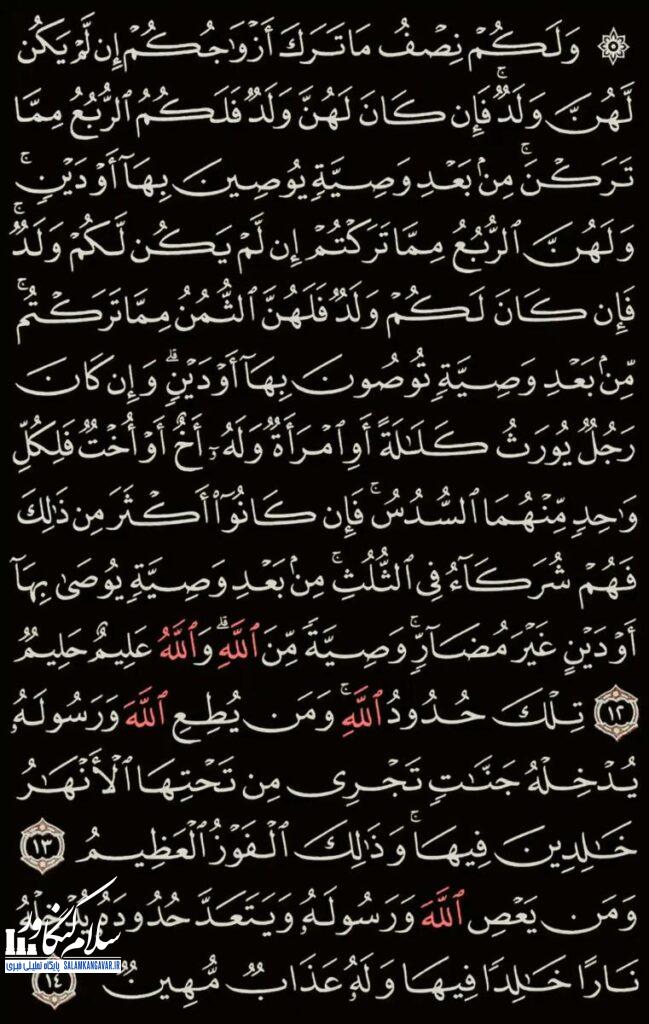 ۞ وَلَكُمْ نِصْفُ مَا تَرَكَ أَزْوَٰجُكُمْ إِن لَّمْ يَكُن
لَّهُنَّ وَلَدٌ ۚ فَإِن كَانَ لَهُنَّ وَلَدٌ فَلَكُمُ ٱلرُّبُعُ مِمَّا
تَرَكْنَ ۚ مِنۢ بَعْدِ وَصِيَّةٍ يُوصِينَ بِهَآ أَوْ دَيْنٍ ۚ
وَلَهُنَّ ٱلرُّبُعُ مِمَّا تَرَكْتُمْ إِن لَّمْ يَكُن لَّكُمْ وَلَدٌ ۚ
فَإِن كَانَ لَكُمْ وَلَدٌ فَلَهُنَّ ٱلثُّمُنُ مِمَّا تَرَكْتُم ۚ
مِّنۢ بَعْدِ وَصِيَّةٍ تُوصُونَ بِهَآ أَوْ دَيْنٍ ۗ وَإِن كَانَ
رَجُلٌ يُورَثُ كَلَٰلَةً أَوِ ٱمْرَأَةٌ وَلَهُۥٓ أَخٌ أَوْ أُخْتٌ فَلِكُلِّ
وَٰحِدٍ مِّنْهُمَا ٱلسُّدُسُ ۚ فَإِن كَانُوٓا۟ أَكْثَرَ مِن ذَٰلِكَ
فَهُمْ شُرَكَآءُ فِى ٱلثُّلُثِ ۚ مِنۢ بَعْدِ وَصِيَّةٍ يُوصَىٰ بِهَآ
أَوْ دَيْنٍ غَيْرَ مُضَآرٍّ ۚ وَصِيَّةً مِّنَ ٱللَّهِ ۗ وَٱللَّهُ عَلِيمٌ حَلِيمٌ
١٢ تِلْكَ حُدُودُ ٱللَّهِ ۚ وَمَن يُطِعِ ٱللَّهَ وَرَسُولَهُۥ
يُدْخِلْهُ جَنَّٰتٍ تَجْرِى مِن تَحْتِهَا ٱلْأَنْهَٰرُ
خَٰلِدِينَ فِيهَا ۚ وَذَٰلِكَ ٱلْفَوْزُ ٱلْعَظِيمُ ١٣
وَمَن يَعْصِ ٱللَّهَ وَرَسُولَهُۥ وَيَتَعَدَّ حُدُودَهُۥ يُدْخِلْهُ
نَارًا خَٰلِدًا فِيهَا وَلَهُۥ عَذَابٌ مُّهِينٌ ١٤
سلام کنگاور
پایگاه تحلیلی خبری SALAMKANGAVAR.IR